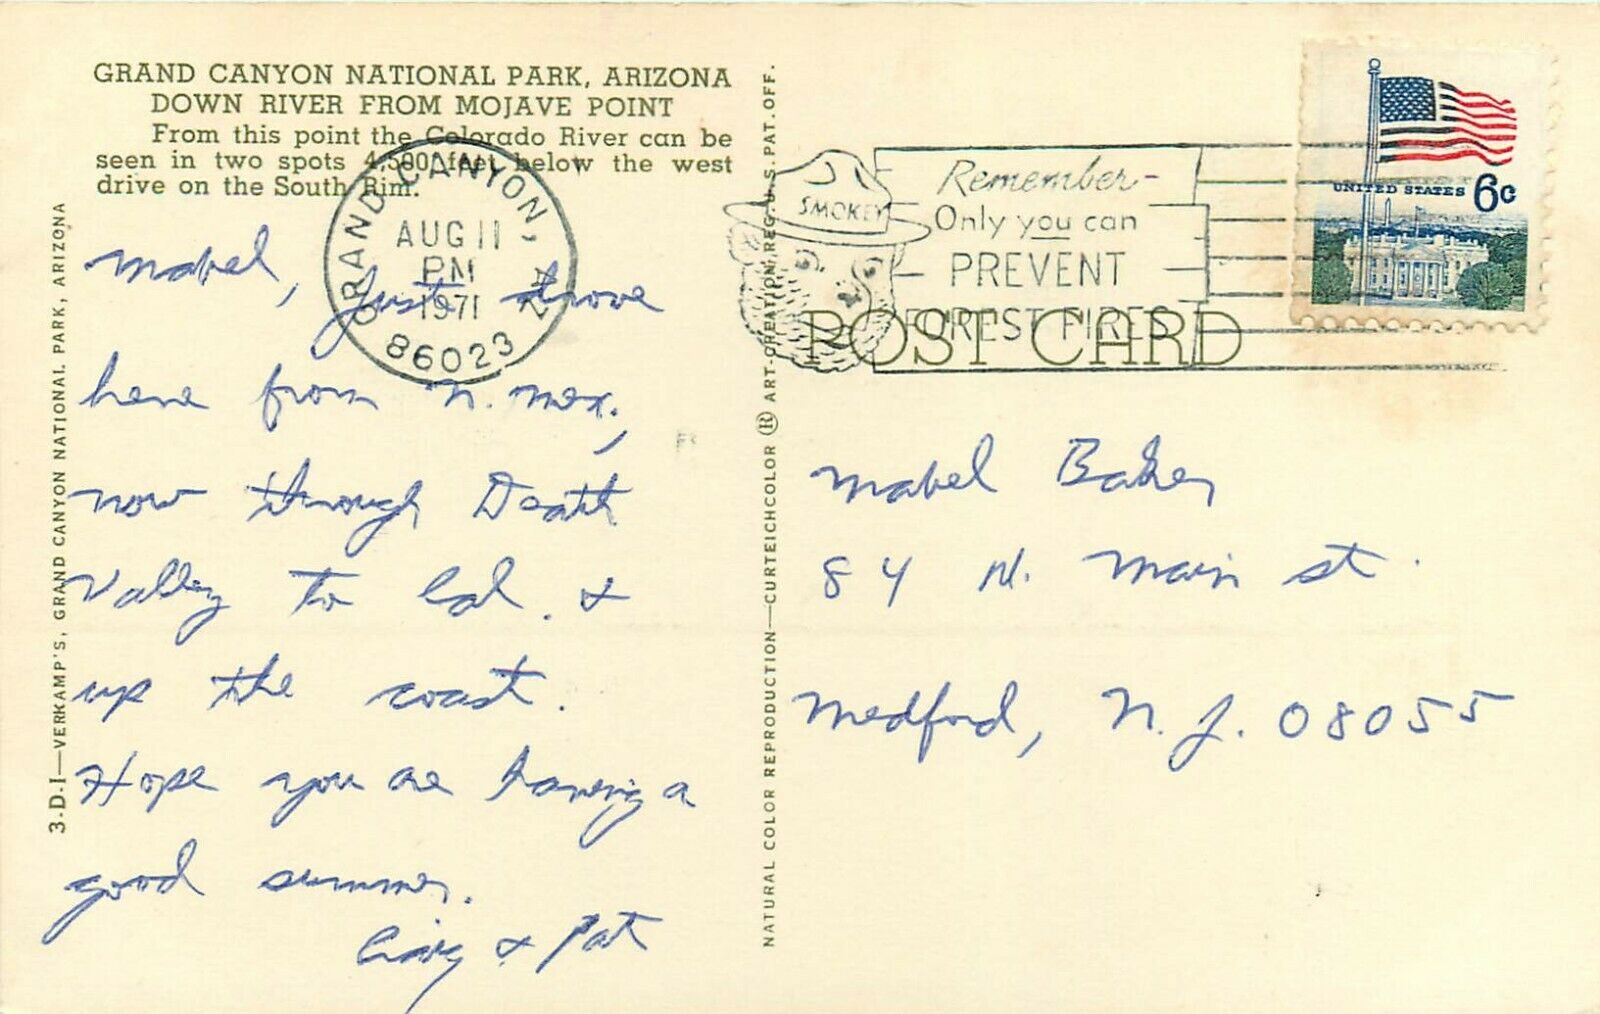 GRAND CANYON NATIONAL PARK, ARIZONA
DOWN RIVER FROM MOJAVE POINT
From this point the Colorado River can be
seen in two spots 4,500 feet below the west
drive on the South Rim.
GRAND CANYON, AZ
AUG 11
PM
1971
86023
Mabel, Just drove
here from N. Mex.,
now through Death
Valley to Cal. &
up the coast.
Hope you are having a
good summer.
& Pat
3-D-1—VERKAMP'S, GRAND CANYON NATIONAL PARK, ARIZONA
NATURAL COLOR REPRODUCTION—CURTEICHCOLOR ® ART-CREATION, REG. U.S. PAT. OFF.
SMOKEY
Remember-
Only you can
PREVENT
FOREST FIRES
POST CARD
UNITED STATES 6c
Mabel Baker
84 N. Main St.
Medford, N.J. 08055